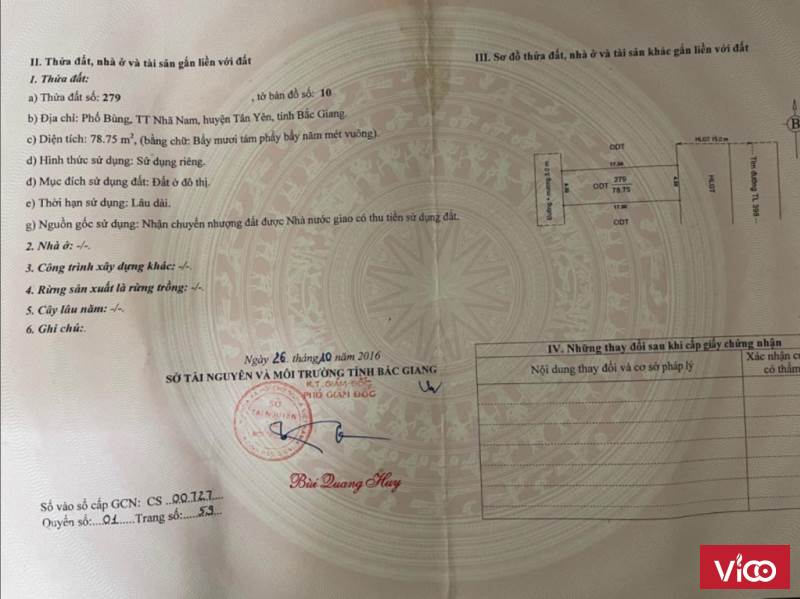 II. Thửa đất, nhà ở và tài sản gắn liền với đất
1. Thửa đất:
a) Thửa đất số: 279 , tờ bản đồ số: 10
b) Địa chỉ: Phố Bùng, TT Nhã Nam, huyện Tân Yên, tỉnh Bắc Giang.
c) Diện tích: 78.75 m², (bằng chữ: Bẩy mươi tám phẩy bẩy năm mét vuông).
d) Hình thức sử dụng: Sử dụng riêng.
đ) Mục đích sử dụng đất: Đất ở đô thị.
e) Thời hạn sử dụng: Lâu dài.
g) Nguồn gốc sử dụng: Nhận chuyển nhượng đất được Nhà nước giao có thu tiền sử dụng đất.
2. Nhà ở: -/-.
3. Công trình xây dựng khác: -/-.
4. Rừng sản xuất là rừng trồng: -/-.
5. Cây lâu năm: -/-.
6. Ghi chú:.
Ngày 26 tháng 10 năm 2016
SỞ TÀI NGUYÊN VÀ MÔI TRƯỜNG TỈNH BẮC GIANG
K.T. GIÁM ĐỐC
PHÓ GIÁM ĐỐC
SỞ
TÀI NGUYÊN
Bùi Quang Huy
Số vào sổ cấp GCN: CS ..00727....
Quyển số:....01.....Trang số:.....53...
III. Sơ đồ thửa đất, nhà ở và tài sản khác gắn liền với đất
B
HLGT 15.0 m
ODT
17.50
Đường + mương 5.0 m
4.50
ODT 279
78.75
4.50
HLGT
Tim đường TL 398
17.50
ODT
IV. Những thay đổi sau khi cấp giấy chứng nhận
Nội dung thay đổi và cơ sở pháp lý
Xác nhận c
có thẩm
ViCO